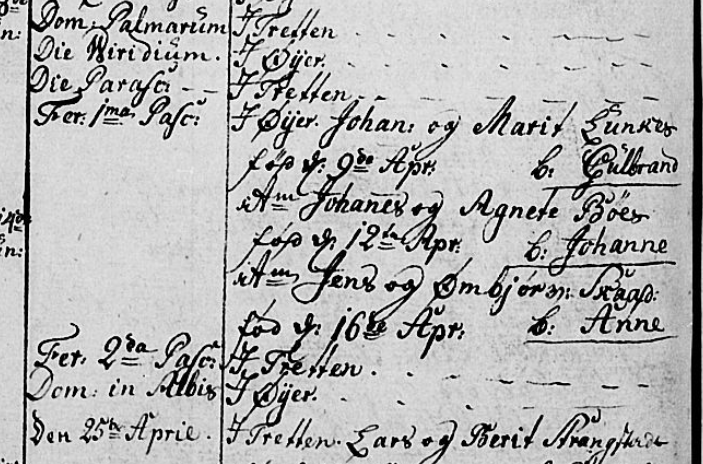 Dom: Palmarum I Tretten
Die Viridium. I Øÿer.
Die Parasc: I Tretten
Fer: 1ma Pasc: I Øÿer. Johan: og Marit Lunkes
fød d: 9de Apr: b: Gulbrand
it Johanes og Agnete Böes
fød d: 12te Apr. b: Johanne
it Jens og Ømbjør Skaad:
fød d: 16de Apr: b: Anne
Fer: 2da Pasc: I Tretten
Dom: in Albis I Øÿer.
Den 25te April. I Tretten. Lars og Berit Strangstad